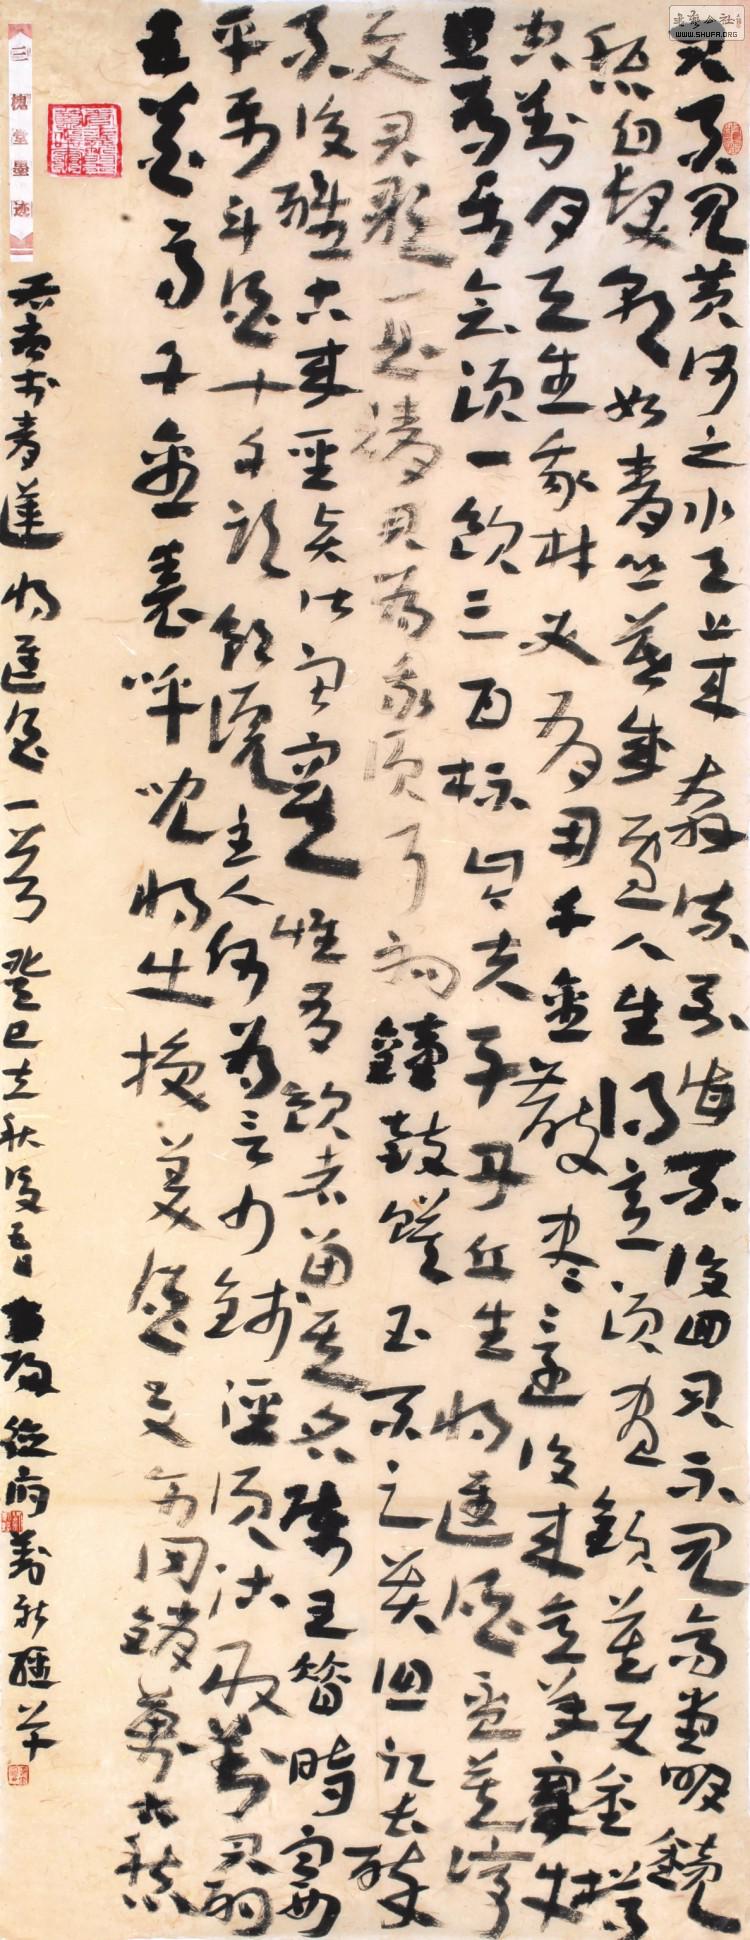 君不見黃河之水天上來奔流到海不復回君不見高堂明鏡
悲白髮朝如青絲暮成雪人生得意須盡歡莫使金樽
空對月天生我材必有用千金散盡還復來烹羊宰牛
且為樂會須一飲三百杯岑夫子丹丘生將進酒盃莫停
與君歌一曲請君為我傾耳聽鐘鼓饌玉不足貴但願長醉
不復醒古來聖賢皆寂寞惟有飲者留其名陳王昔時宴
平樂斗酒十千恣歡謔主人何為言少錢徑須沽取對君酌
五花馬千金裘呼兒將出換美酒與爾同銷萬古愁
青蓮將進酒一首癸巳立秋後
三槐堂墨迹
书法公社
WWW.SHUFA.ORG